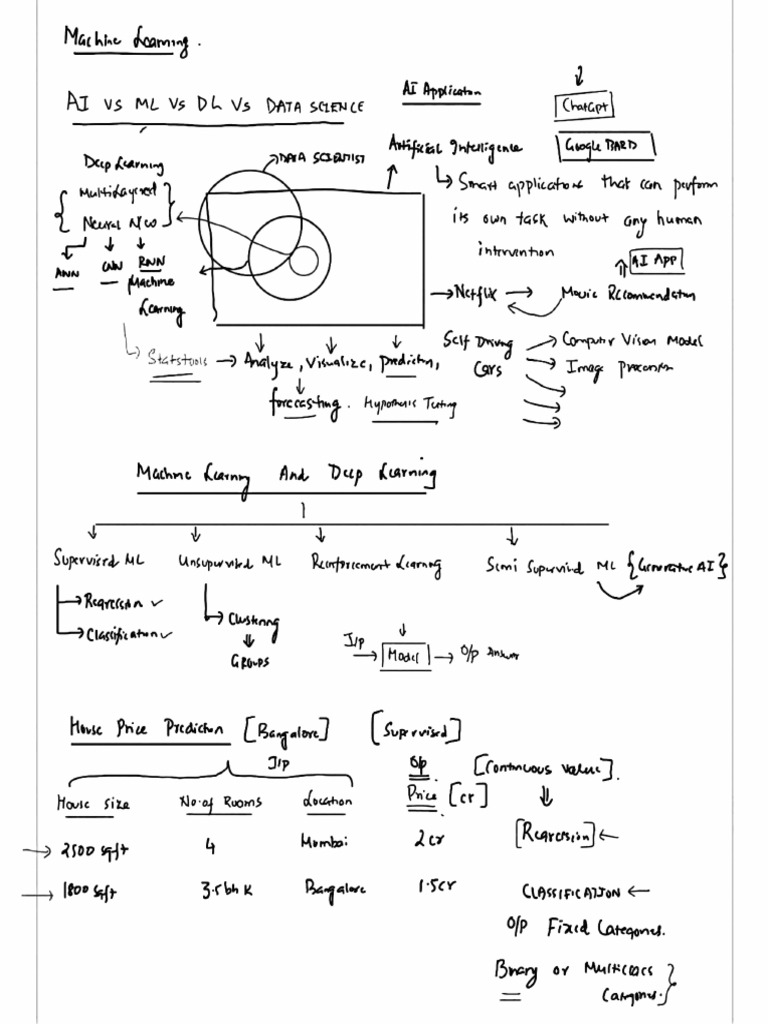 Machine Learning.
AI VS ML VS DL VS DATA SCIENCE
AI Application
ChatGpt
Google BARD
Deep Learning
Multilayered
Neural N/w
ANN CNN RNN
Machine
Learning
DATA SCIENTIST
Artificial Intelligence
Smart application that can perform
its own task without any human
intervention
AI APP
Netflix → Movie Recommendation
Self Driving
Cars
Computer Vision Model
Image
Stats tools → Analyze, Visualize, Prediction,
forecasting. Hypothesis Testing
Machine Learning And Deep Learning
Supervised ML
Unsupervised ML
Reinforcement Learning
Semi Supervised ML {Generative AI}
Regression ✓
Classification ✓
Clustering
GROUPS
I/p → Model → O/p Answer
House Price Prediction [Bangalore] [Supervised]
I/p
O/p
[Continuous Value].
House Size No. of Rooms Location Price [cr]
2500 sqft 4 Mumbai 2cr
1800 sqft 3.5bhk Bangalore 1.5cr
[Regression] ←
CLASSIFICATION ←
O/p Fixed Categories.
Binary or Multiclass
Categories.